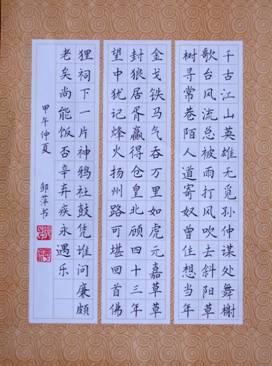 千古江山英雄无觅孙仲谋处舞榭
歌台风流总被雨打风吹去斜阳草
树寻常巷陌人道寄奴曾住想当年
金戈铁马气吞万里如虎元嘉草草
封狼居胥赢得仓皇北顾四十三年
望中犹记烽火扬州路可堪回首佛
狸祠下一片神鸦社鼓凭谁问廉颇
老矣尚能饭否辛弃疾永遇乐
甲午仲夏 邹萍书